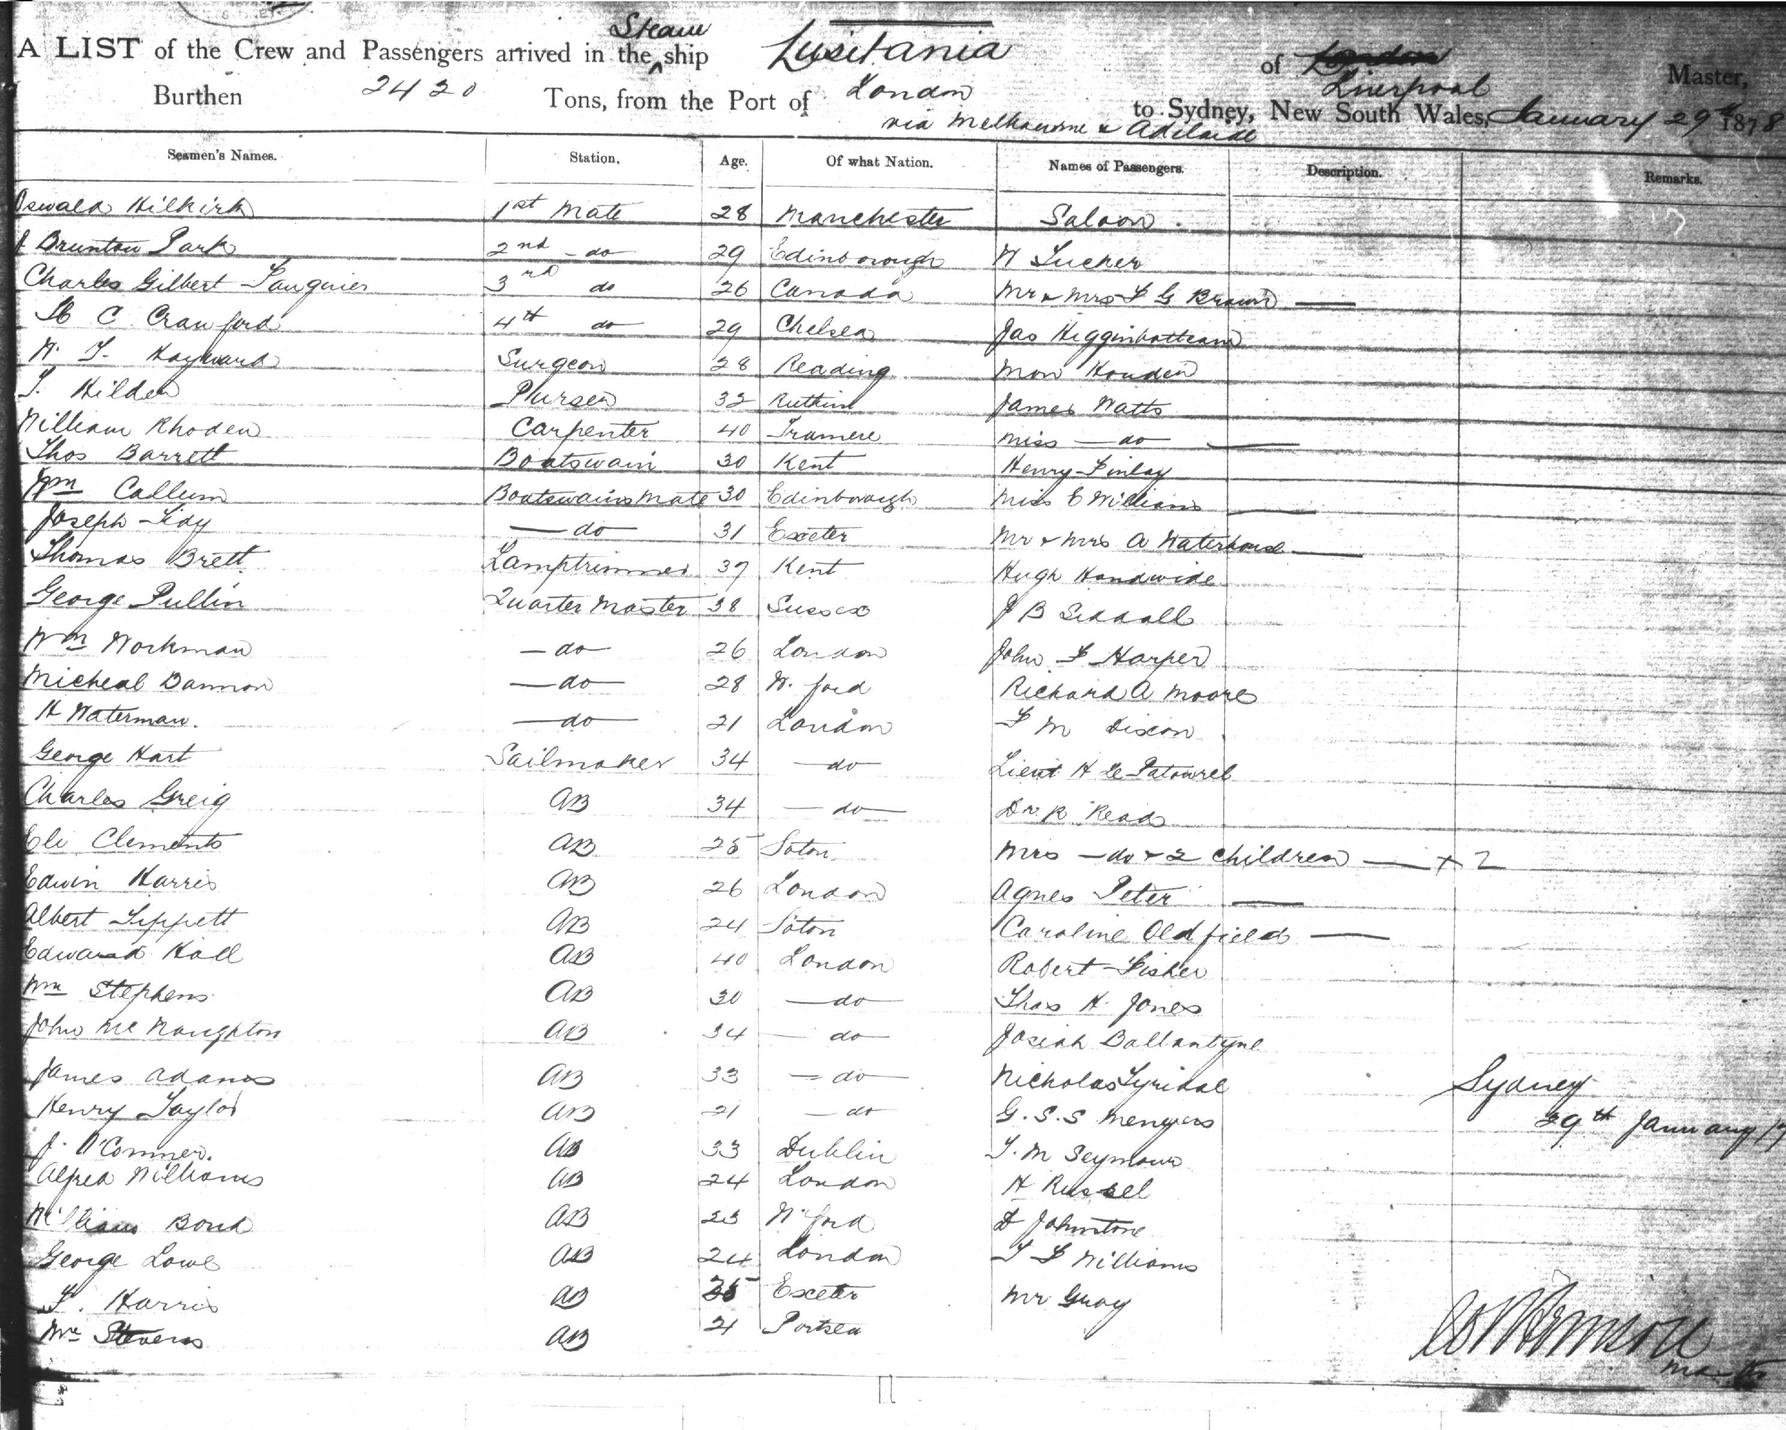 A LIST of the Crew and Passengers arrived in the Steam ship Lusitania of Liverpool Master,
Burthen 2420 Tons, from the Port of London via Melbourne & Adelaide to Sydney, New South Wales, January 29th 1878
Seamen's Names. Station. Age. Of what Nation. Names of Passengers. Description. Remarks.
Oswald Hilkirk 1st Mate 28 Manchester Saloon.
J Brunton Park 2nd do 29 Edinborough W Tucker
Charles Gilbert Fauquier 3rd do 26 Canada Mr & Mrs F G Brown
C Crawford 4th do 29 Chelsea Jas Higginbottam
W. T. Hayward Surgeon 28 Reading Houden
T. Hilden Purser 32 Ruthin James Watts
William Rhoden Carpenter 40 Tramere Miss do
Thos Barrett Boatswain 30 Kent Henry Finlay
Wm Callum Boatswains Mate 30 Edinborough Miss E Williams
Joseph Fay do 31 Exeter Mr & Mrs A Waterhouse
Thomas Brett Lamptrimmer 37 Kent Hugh
George Pullin Quarter Master 38 Sussex J B Siddall
Wm Workman do 26 London John F Harper
Micheal Bannon do 28 W. ford Richard A Moore
H Waterman. do 21 London F M Dixon
George Hart Sailmaker 34 do Lieut H
Charles Greig AB 34 do Dr R Read
Eli Clements AB 25 Soton Mrs do & 2 children + 2
Edwin Harris AB 26 London Agnes Peter
Albert Tippett AB 24 Soton Caroline Oldfield
Edward Hall AB 40 London Robert Fisher
Wm Stephens AB 30 do Thos H. Jones
John McNaughton AB 34 do Josiah Ballantyne
James Adams AB 33 do Nicholas Sydney
Henry Taylor AB 21 do G. S. S 29th January
J. O'Conner. AB 33 Dublin T. M Seymour
Alfred Williams AB 24 London H Russel
William Bond AB 23 W'ford D Johnstone
George Lowe AB 24 London T F Williams
T. Harris AB 25 Exeter Mr Gray
Wm Stevens AB 21 Portsea